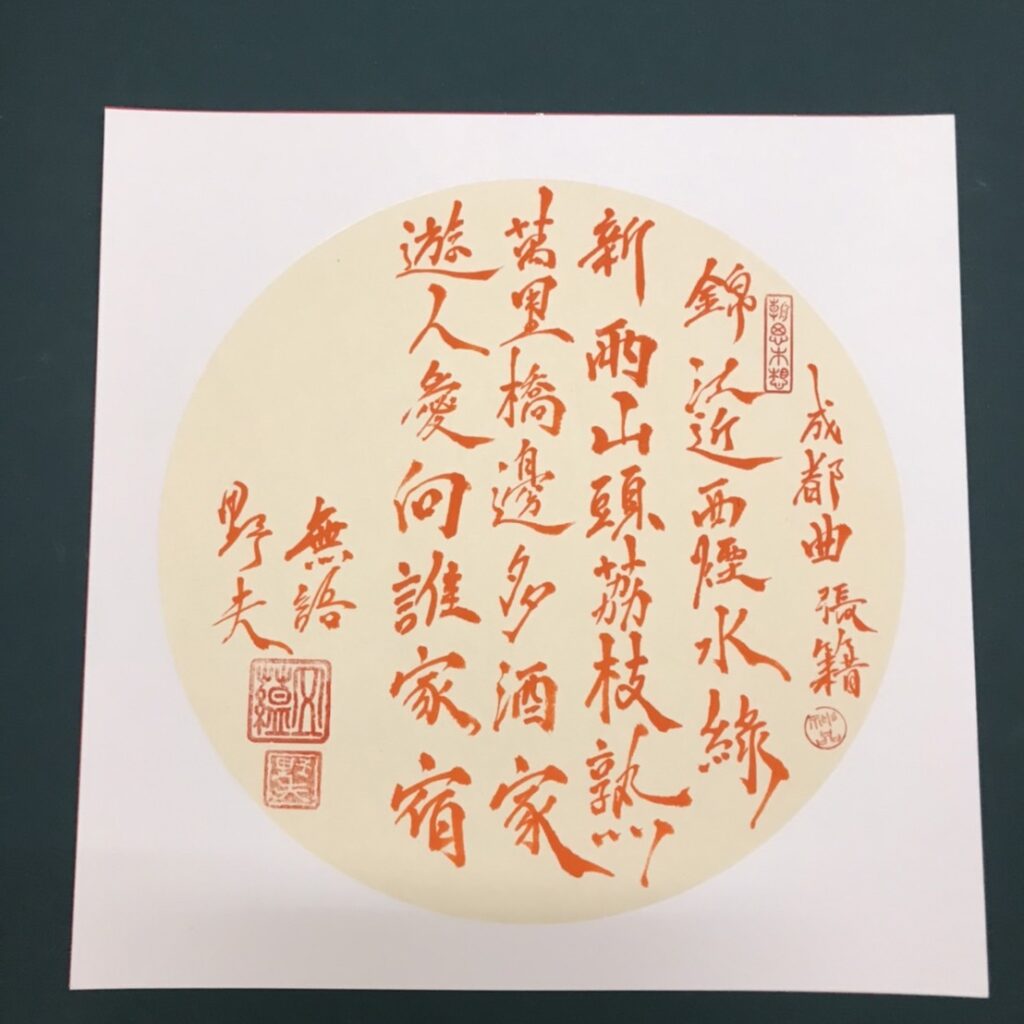 成都曲 張籍
錦江近西煙水綠
新雨山頭荔枝熟
萬里橋邊多酒家
遊人愛向誰家宿
無語
野夫